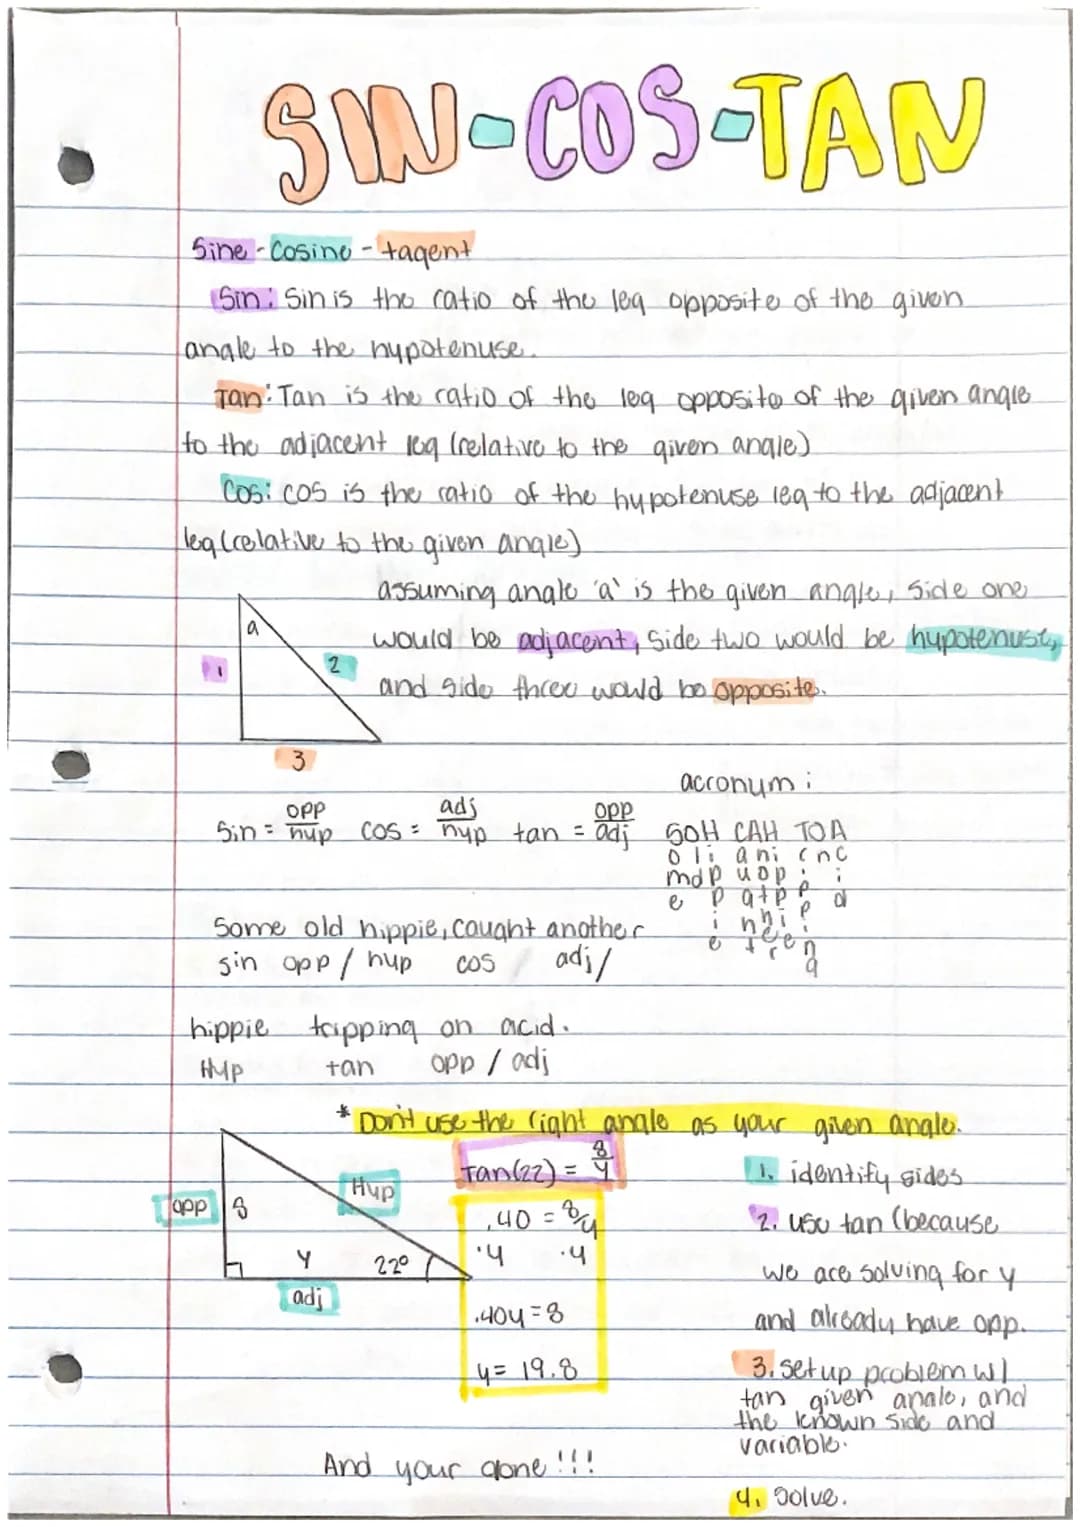 SIN-COS-TAN
Sine - Cosine - tagent
Sin: Sin is the ratio of the leg opposite of the given
angle to the hypotenuse.
Tan: Tan is the ratio of the leg opposite of the given angle
to the adjacent leg (relative to the given angle)
Cos: cos is the ratio of the hypotenuse leg to the adjacent
leg (relative to the given angle)
assuming angle 'a' is the given angle, side one
would be adjacent, side two would be hypotenuse,
and side three would be opposite.
a
1
2
3
acronum:
Sin = opp/hyp cos = adj/hyp tan = opp/adj
SOH CAH TOA
o l i a n i r n c
m d p u o p i i
e p g t p p d
i h h i p
e t e e i
r n
g
Some old hippie, caught another
sin opp / hyp cos adj/
hippie tripping on acid.
Hyp tan opp / adj
* Don't use the right angle as your given angle.
opp 8 Hyp
y 22°
adj
Tan(22) = 8/y
.40 = 8/y
·y ·y
.40y = 8
y = 19.8
1. identify sides
2. use tan (because
we are solving for y
and already have opp.
3. set up problem w/
tan given angle, and
the known side and
variable.
4. Solve.
And your done!!!